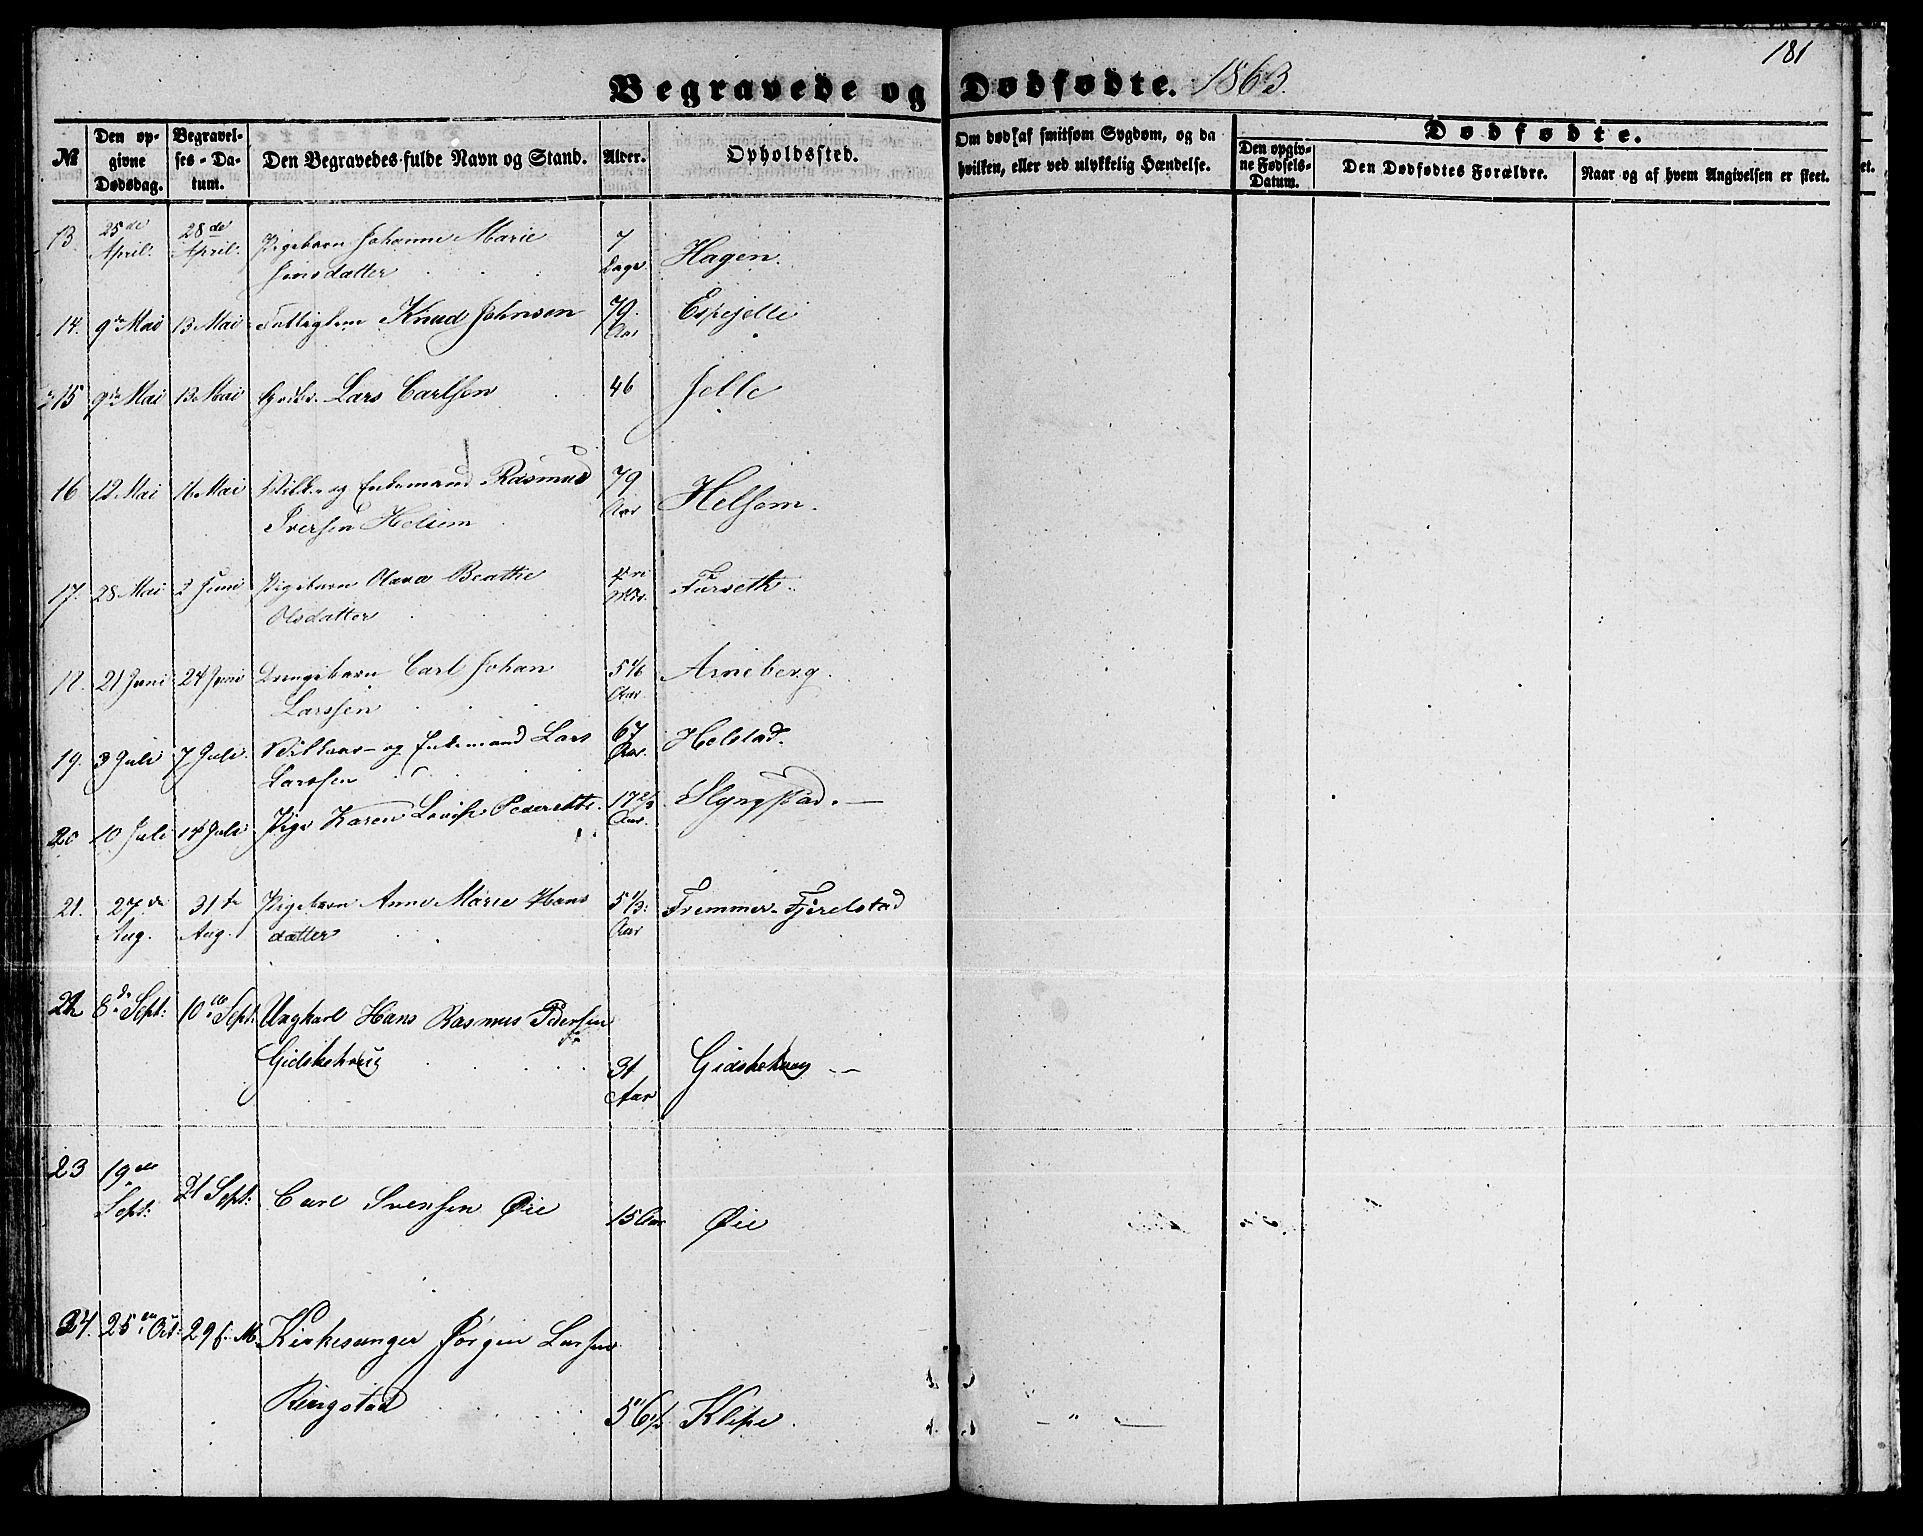 181
Begravede og Dødfødte. 1863.
№
Den opgivne Dødsdag.
Begravelses-Datum.
Den Begravedes fulde Navn og Stand.
Alder.
Opholdssted.
Om død af smitsom Sygdom, og da hvilken, eller ved ulykkelig Hændelse.
Dødfødte.
Den opgivne Fødsels-Datum.
Den Dødfødtes Forældre.
Naar og af hvem Angivelsen er skeet.
13. 25de April. 28de April. Pigebarn Johanne Marie 7 Dage. Hagen.
Jensdatter
14. 9de Mai 13 Mai Fattiglem Knud Johnsen 79. Aar Espejelle
15 9de Mai 13 Mai Lars Carlsen 46 Jelle
16 12 Mai 16 Mai og Enkemand Rasmus 79 Aar Helsem.
Iversen Helsem
17. 28 Mai 2 Juni Pigebarn Olava Beathe Furseth.
Olsdatter
18. 21 Juni 24 Juni Drengebarn Carl Johan 5 1/6 Aar Arneberg.
Larssen
19. 3 Juli 7 Juli. og Enkemand Lars 67 Aar. Holstad.
Larssen
20 10 Juli 14 Juli Pige Karen Lovise Pedersdtr. 17 2/3 Aar. Slyngstad.
21. 27de Aug. 31te Aug. Pigebarn Anne Marie Hans 5 1/3. Aar Fremmer-Fjørelstad
datter
22 8de Sept: 10de Sept: Ungkarl Hans Rasmus Pedersen
Gidskehaug 31 Aar Gidskehaug
23 19de Sept: 21 Sept: Carl Svensen Øie 15 Aar Øie
24. 25de Oct: 29 f. M. Kirkesanger Jørgen Larsen
Ringstad 56 1/2 Klipe.